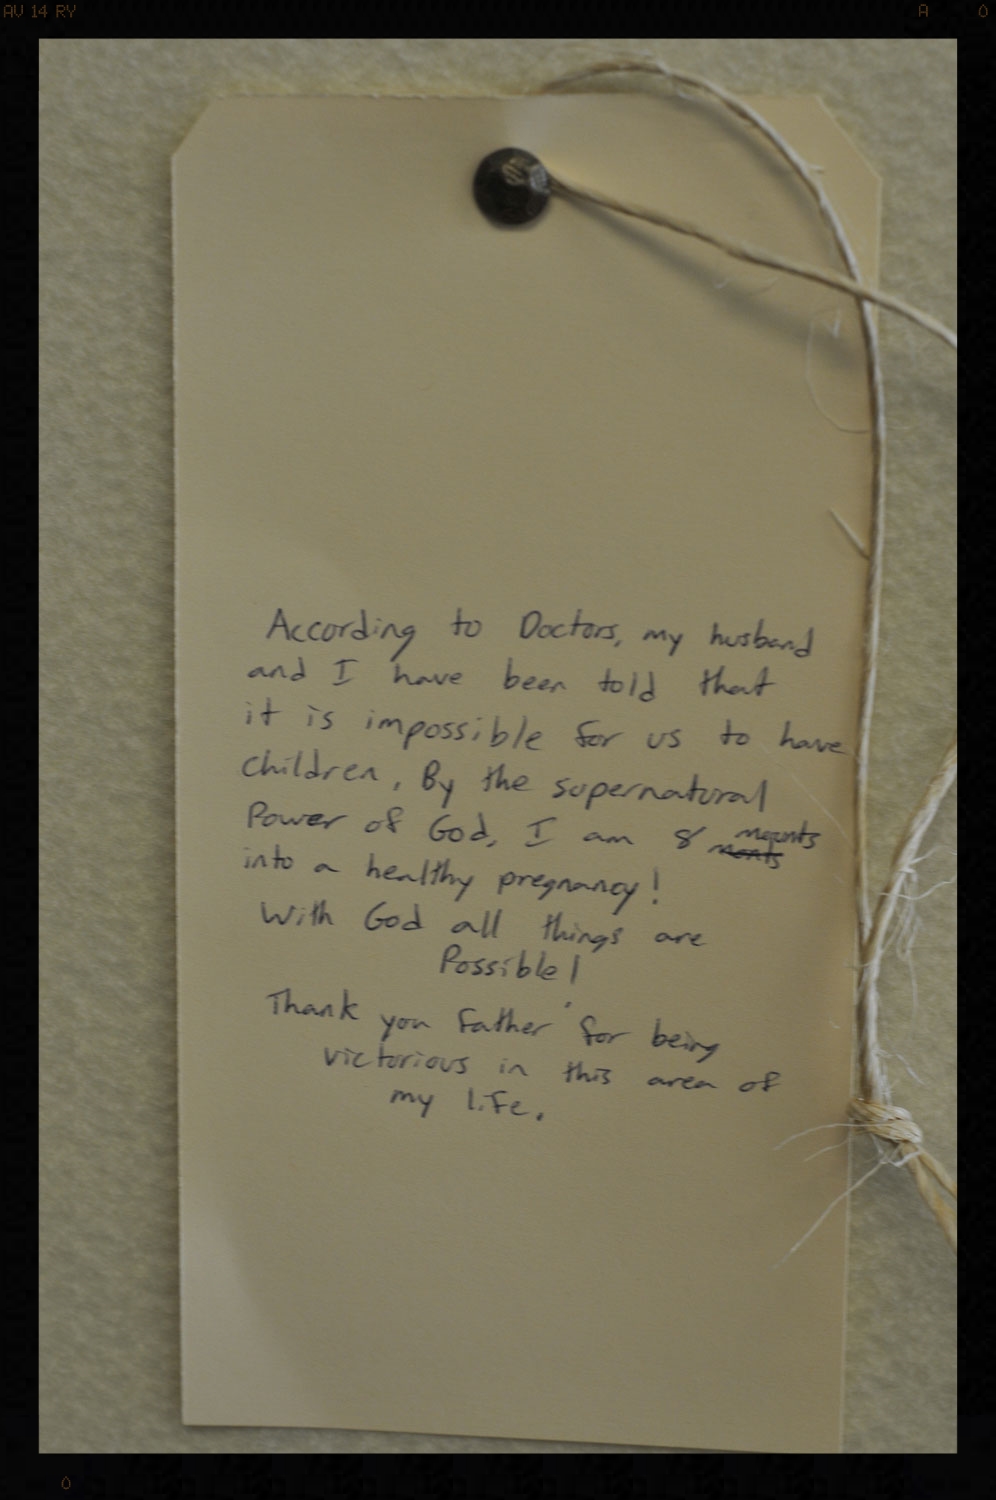 AV 14 RY
A 0
According to Doctors, my husband
and I have been told that
it is impossible for us to have
children. By the supernatural
Power of God, I am 8 mounts
into a healthy pregnancy!
With God all things are
Possible!
Thank you Father for being
victorious in this area of
my life.
0